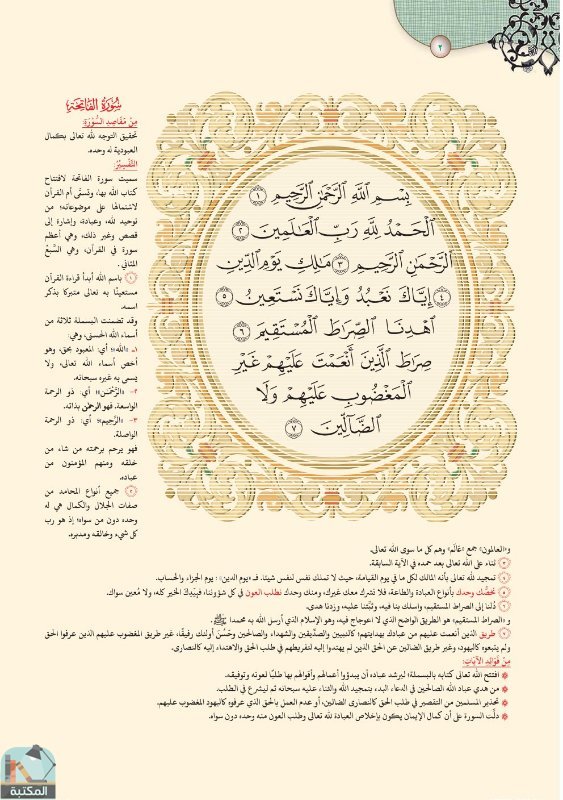 ٢
سُورَةُ الفَاتِحَةِ
مِنْ مَقَاصِدِ السُّورَةِ:
تحقيق التوجه لله تعالى بكمال
العبودية له وحده.
التَّفْسِيرُ:
سميت سورة الفاتحة لافتتاح
كتاب الله بها، وتسمّى أم القرآن
لاشتمالها على موضوعاته؛ من
توحيد لله، وعبادة، وإشارة إلى
قصص وغير ذلك، وهي أعظم
سورة في القرآن، وهي السَّبْعُ
المثاني.
١ باسم الله أبدأ قراءة القرآن
مستعينًا به تعالى متبركًا بذكر
اسمه.
وقد تضمنت البسملة ثلاثة من
أسماء الله الحسنى، وهي:
١- «الله»؛ أي: المعبود بحق، وهو
أخص أسماء الله تعالى، ولا
يسمى به غيره سبحانه.
٢- «الرَّحْمَن»؛ أي: ذو الرحمة
الواسعة. فهو الرحمن بذاته.
٣- «الرَّحِيم»؛ أي: ذو الرحمة
الواصلة.
فهو يرحم برحمته من شاء من
خلقه ومنهم المؤمنون من
عباده.
٢ جميع أنواع المحامد من
صفات الجلال والكمال هي له
وحده دون من سواه؛ إذ هو رب
كل شيء وخالقه ومدبره.
بِسْمِ ٱللَّهِ ٱلرَّحْمَٰنِ ٱلرَّحِيمِ ١
ٱلْحَمْدُ لِلَّهِ رَبِّ ٱلْعَٰلَمِينَ ٢
ٱلرَّحْمَٰنِ ٱلرَّحِيمِ ٣ مَٰلِكِ يَوْمِ ٱلدِّينِ
٤ إِيَّاكَ نَعْبُدُ وَإِيَّاكَ نَسْتَعِينُ ٥
ٱهْدِنَا ٱلصِّرَٰطَ ٱلْمُسْتَقِيمَ ٦
صِرَٰطَ ٱلَّذِينَ أَنْعَمْتَ عَلَيْهِمْ غَيْرِ
ٱلْمَغْضُوبِ عَلَيْهِمْ وَلَا
ٱلضَّآلِّينَ ٧
و«العالمون» جمع «عَالَم» وهم كل ما سوى الله تعالى.
٣ ثناء على الله تعالى بعد حمده في الآية السابقة.
٤ تمجيد لله تعالى بأنه المالك لكل ما في يوم القيامة، حيث لا تملك نفس لنفس شيئًا. فـ«يوم الدين»: يوم الجزاء والحساب.
٥ نخصُّك وحدك بأنواع العبادة والطاعة، فلا نشرك معك غيرك، ومنك وحدك نطلب العون في كل شؤوننا، فبيَدِكَ الخير كله، ولا مُعين سواك.
٦ دُلَّنا إلى الصراط المستقيم، واسلك بنا فيه، وثبّتنا عليه، وزدنا هدى.
و «الصراط المستقيم» هو الطريق الواضح الذي لا اعوجاج فيه، وهو الإسلام الذي أرسل الله به محمدًا ﷺ.
٧ طريق الذين أنعمت عليهم من عبادك بهدايتهم؛ كالنبيين والصدِّيقين والشهداء والصالحين وحَسُنَ أولئك رفيقًا، غير طريق المغضوب عليهم الذين عرفوا الحق
ولم يتبعوه كاليهود، وغير طريق الضالين عن الحق الذين لم يهتدوا إليه لتفريطهم في طلب الحق والاهتداء إليه كالنصارى.
مِنْ فَوَائِدِ الآيَاتِ:
افتتح الله تعالى كتابه بالبسملة؛ ليرشد عباده أن يبدؤوا أعمالهم وأقوالهم بها طلبًا لعونه وتوفيقه.
من هدي عباد الله الصالحين في الدعاء البدء بتمجيد الله والثناء عليه سبحانه ثم ليشرع في الطلب.
تحذير المسلمين من التقصير في طلب الحق كالنصارى الضالين، أو عدم العمل بالحق الذي عرفوه كاليهود المغضوب عليهم.
دلَّت السورة على أن كمال الإيمان يكون بإخلاص العبادة لله تعالى وطلب العون منه وحده دون سواه.
المكتبة